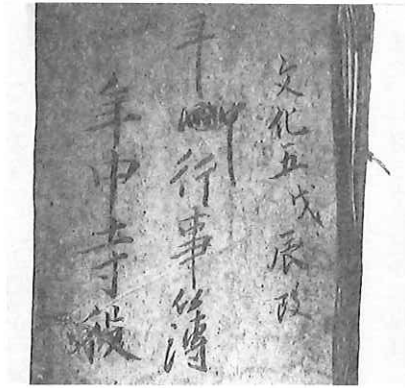 文化五戊辰改
年中行事簿
年中寺役